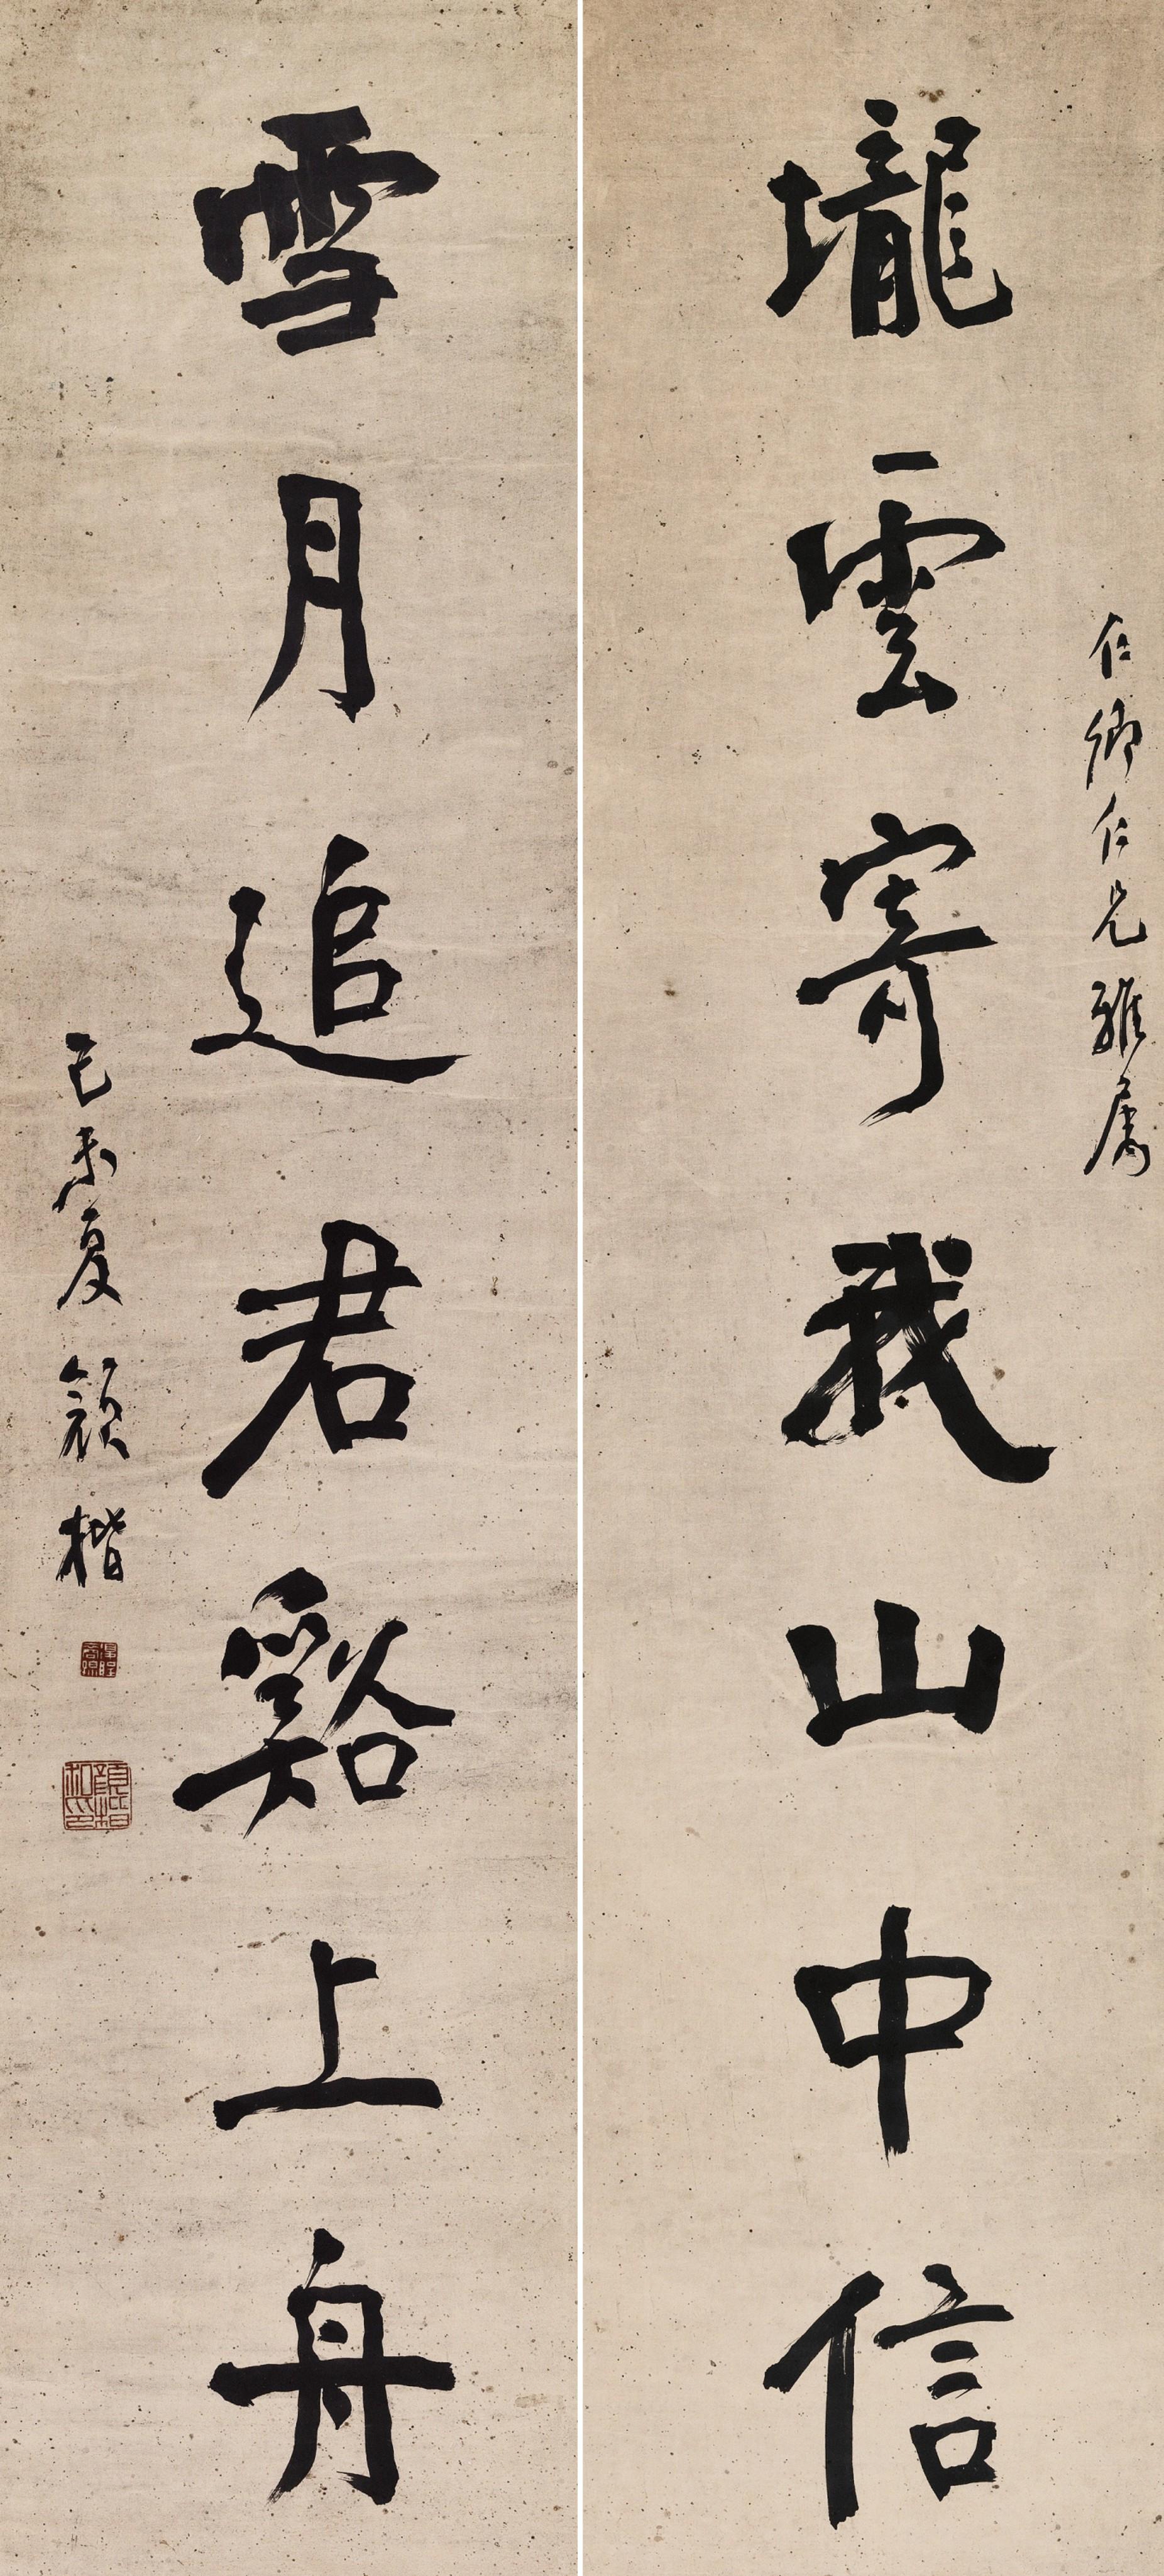 仁卿仁兄雅属
壠雲寄我山中信
雪月追君谿上舟
己未夏 顏楷
顏楷私印